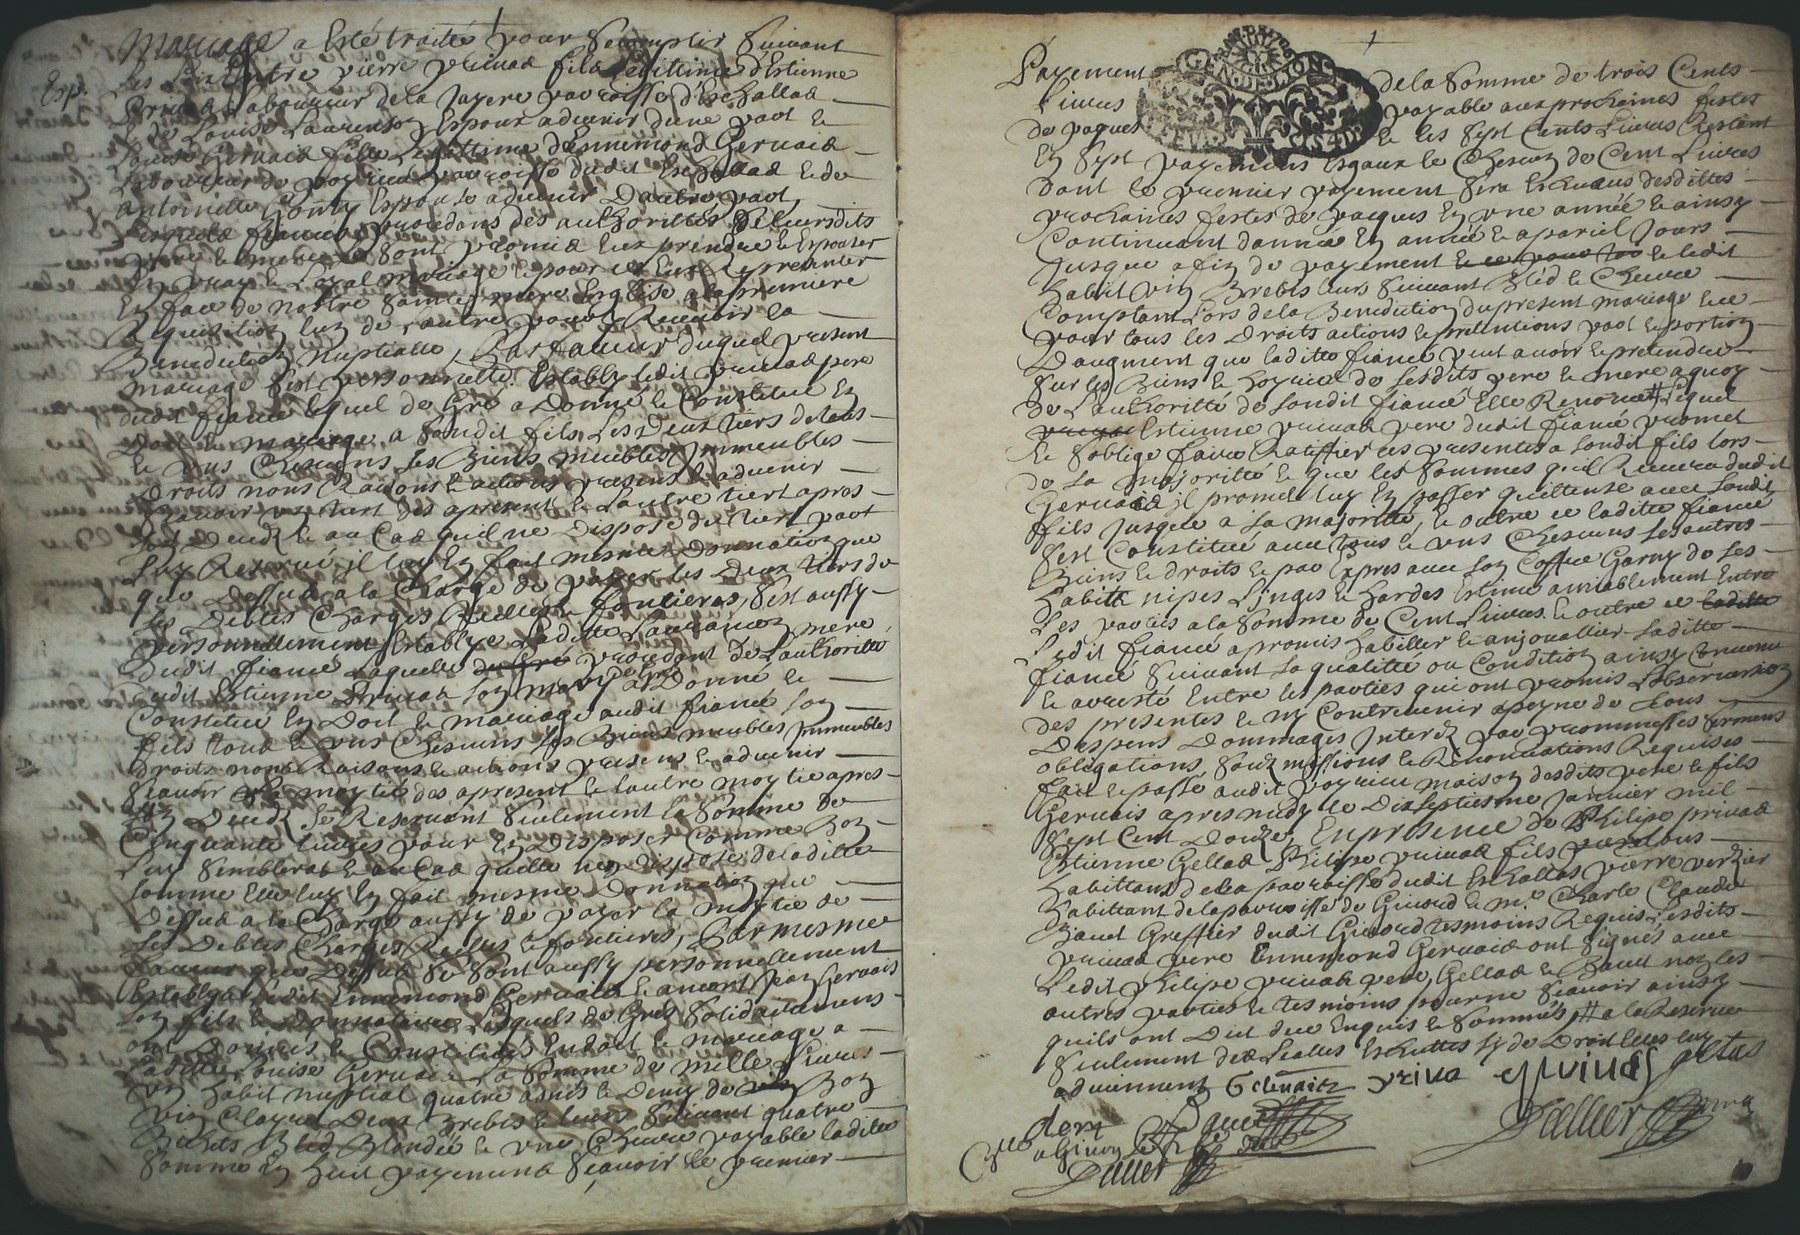 Mariage a Esté traitté pour s'acomplir suivant
Exp.
les loix Entre pierre privad fils legittime d'Estienne
privad Laboureur de la Jayere parroisse d'Eschallas
& de Louise Laurenson Espoux aduenir dune part &
Louise Gervais fille Legittime d'Ennemond Gervais
Laboureur de parroisse dudit Eschallas & de
antoinette Espouse aduenir Dautre part,
Lesquels fiancés procedans des authorittés de leursdits
pere & mere se sont promis Eux prendre & Espouser
En vray & Loyal mariage & pour ce Eux Representer
En face de nostre sainte mere Esglise a la premiere
Requisition lun de l'autre pour Recevoir la
Benediction nuptialle, En faveur duquel present
mariage s'est personnellemt Estably ledit privad pere
dudit fiancé lequel de Gré a Donné & Constitué En
Dot & mariage a sondit fils Les Deux tiers de tous
& uns Chescuns ses Biens meubles Immeubles
Droits noms Raisons & actions presens & aduenir
scavoir un tiers dés apresent & l'autre tiers apres
son Decedz & au Cas quil ne Dispose du tiers part
luy Reservé, il luy En fait mesme Donnation que
que Dessus a la Charge de payer les Deux tiers de
ses Debtes Charges Reelles & fontieres, s'est aussy
personnellement Establye Laditte Laurançon mere
dudit fiancé Laquelle de Gré procedant de L'authoritté
dudit Estienne privad son mary a Donné &
Constitué En Dot & mariage audit fiancé son
fils tous & uns Chescuns ses Biens meubles Immeubles
droits noms Raisons & actions presens & aduenir
scavoir la moytié dés apresent & lautre moytié apres
son Decedz se Reservant seulement la somme de
Cinquante livres pour En Disposer Comme Bon
Luy semblerat & au Cas quelle nen Dispose de laditte
somme Elle luy En fait mesme Donnation que
Dessus a la Charge aussy de payer la moytié de
ses Debtes Charges Reelles & fontieres, En mesme
faveur que Dessus se sont aussy personnellement
Establys ledit Ennemond Gervais & Jean Gervais
son fils & Donnataire Lesquels de Gré solidairement
ont Donnés & Constitués En dot & mariage a
Laditte Louise Gervais La somme de mille Livres
un habit nuptial quatre asnés & Demy de Bon
vin Clairet Deux Brebis & leurs suivant quatre
Bichets Bled Blondée & une Chevre payable laditte
somme En huit payemens scavoir le premier
Payement de la somme de trois Cents
Livres payable aux prochaines festes
de paques & les sept Cents Livres Restant
En sept payemens Esgaux de Chescun de Cent Livres
dont le premier payement sera Escheus desdittes
prochaines festes de paques En une année & ainsy
Continuant dannée En année & a pareil Jours
Jusque a fin de payement & ledit
habit vin Brebis leurs suivant Bled & Chevre
Comptant Lors de la Benediction du present mariage & ce
pour tous les Droits actions & prettentions part & portion
Daugment que laditte fiancée peut avoir & pretendre
sur les Biens & hoyries de sesdits pere & mere a quoy
de L'authoritté de sondit fiancé Elle Renonce # Lequel
Estienne privad pere dudit fiancé promet
& s'oblige faire Ratiffier ces presentes a sondit fils lors
de sa majoritté & que les sommes quil Recevra dudit
Gervais il promet luy En passer quittense avec sondit
fils Jusque a sa majoritté, & outre ce laditte fiancée
s'est Constituée avec tous & uns Chescuns ses autres
Biens & droits & par Expres avec son Coffre Garny de ses
habits nipes Linges & hardes Estimé amiablement Entre
Les parties a la somme de Cent Livres & outre ce laditte
Ledit fiancé a promis habiller & anjoualler laditte
fiancée suivant sa qualitté ou Condition ainsy Convenu
& arresté Entre les parties qui ont promis L'observation
des presentes & ny Contrevenir a peyne de tous
Despens Dommages Interetz par prommesses sermens
obligations soubzmissions & Renonciations Requises
fait & passé audit maison desdits pere & fils
Gervais apres midy le Dixseptiesme Janvier mil
sept Cent Douze, En presence de Philipe privad
Estienne Gellas Philipe privad fils tous
habittans de la parroisse dudit Eschallas pierre verzier
habittant de la parroisse de Givord & Me Charle Claude
Bauet Greffier dudit Givord tesmoins Requis Lesdits
privad pere Ennemond Gervais ont signés avec
Ledit Philipe privad pere, Gellas & Bauet non les
autres parties & tesmoins pour ne scavoir ainsy
quils ont Dit de ce Enquis & sommés, # a la Reserve
seulement des Escheuttes sy de Droit leur luy
adviennent Gervaix priva privas gelas